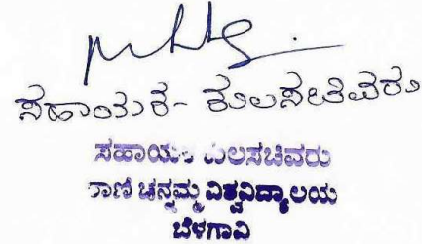 ಸಹಾಯಕ - ಕುಲಸಚಿವರು
ಸಹಾಯಕ ಕುಲಸಚಿವರು
ರಾಣಿ ಚನ್ನಮ್ಮ ವಿಶ್ವವಿದ್ಯಾಲಯ
ಬೆಳಗಾವಿ